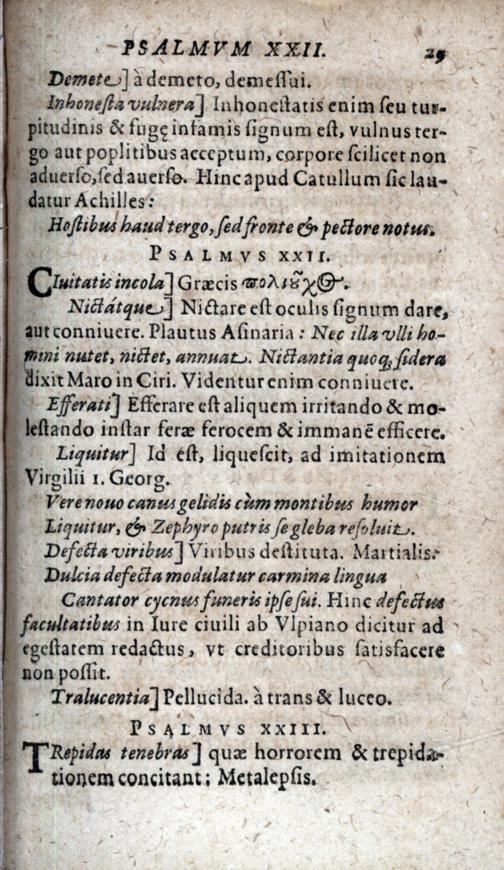 PSALMVM XXII. 29
Demete] à demeto, demessui.
Inhonesta vulnera] Inhonestatis enim seu tur-
pitudinis & fugę infamis signum est, vulnus ter-
go aut poplitibus acceptum, corpore scilicet non
aduerso, sed auerso. Hinc apud Catullum sic lau-
datur Achilles:
Hostibus haud tergo, sed fronte & pectore notus.
PSALMVS XXII.
CIuitatis incola] Græcis πολιοῦχος.
Nictátque] Nictare est oculis signum dare,
aut conniuere. Plautus Asinaria: Nec illa vlli ho-
mini nutet, nictet, annuat. Nictantia quoq; sidera
dixit Maro in Ciri. Videntur enim conniuere.
Efferati] Efferare est aliquem irritando & mo-
lestando instar feræ ferocem & immanē efficere.
Liquitur] Id est, liquescit, ad imitationem
Virgilii 1. Georg.
Vere nouo canus gelidis cùm montibus humor
Liquitur, & Zephyro putris se gleba resoluit.
Defecta viribus] Viribus destituta. Martialis:
Dulcia defecta modulatur carmina lingua
Cantator cycnus funeris ipse sui. Hinc defectus
facultatibus in Iure ciuili ab Vlpiano dicitur ad
egestatem redactus, vt creditoribus satisfacere
non possit.
Tralucentia] Pellucida. à trans & luceo.
PSALMVS XXIII.
TRepidas tenebras] quæ horrorem & trepida-
tionem concitant: Metalepsis.